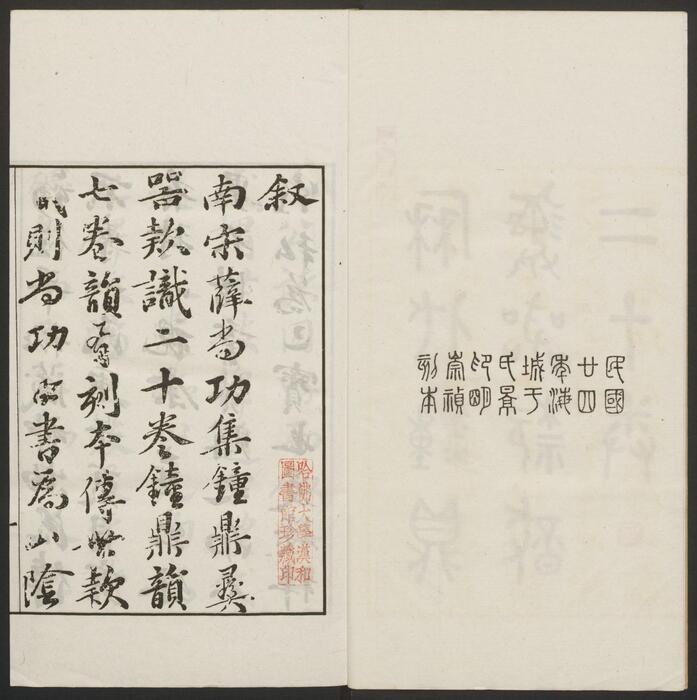 民國
廿四
年海
城于
氏景
印明
崇禎
刻本
叙
南宋薛尚功集鐘鼎彝
器欵識二十卷鐘鼎韻
七卷韻舊刻本傳世欵
識則尚功所書爲山陰
哈佛大學漢和
圖書館珍藏印